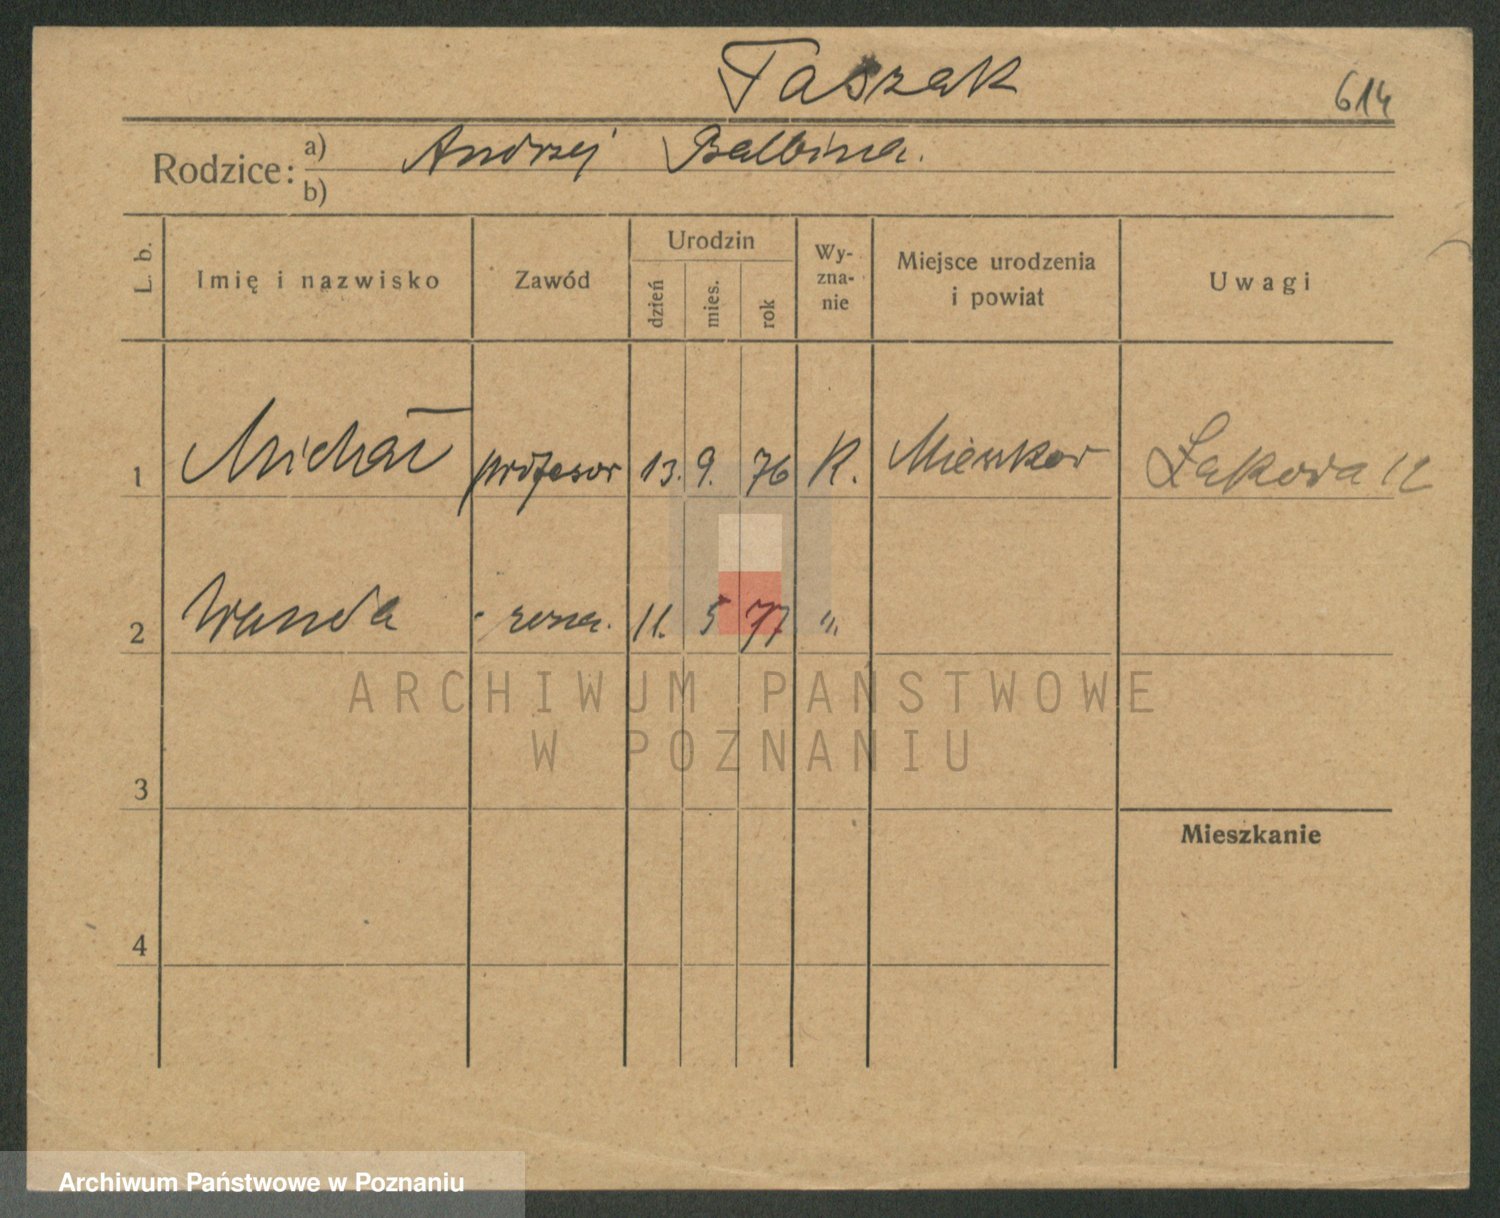 Taszak
614
Rodzice: a) Andrzej Balbina.
b)
L. b. Imię i nazwisko Zawód Urodzin dzień mies. rok Wy-zna-nie Miejsce urodzenia i powiat Uwagi
1 Michał profesor 13. 9. 76 R. Łąkowa 12
2 Wanda żona. 11. 5 77 „
3
Mieszkanie
4
ARCHIWUM PAŃSTWOWE
W POZNANIU
Archiwum Państwowe w Poznaniu